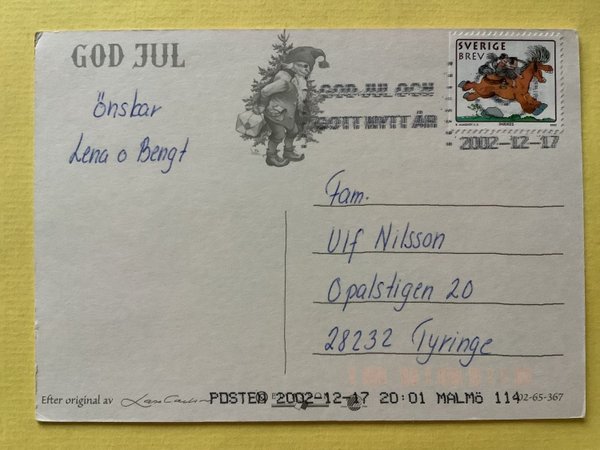 GOD JUL
önskar
Lena o Bengt
SVERIGE
BREV
GOD JUL OCH
GOTT NYTT ÅR
2002-12-17
Fam.
Ulf Nilsson
Opalstigen 20
28232 Tyringe
Efter original av
POSTEN 2002-12-17 20:01 MALMÖ 114
02-65-367